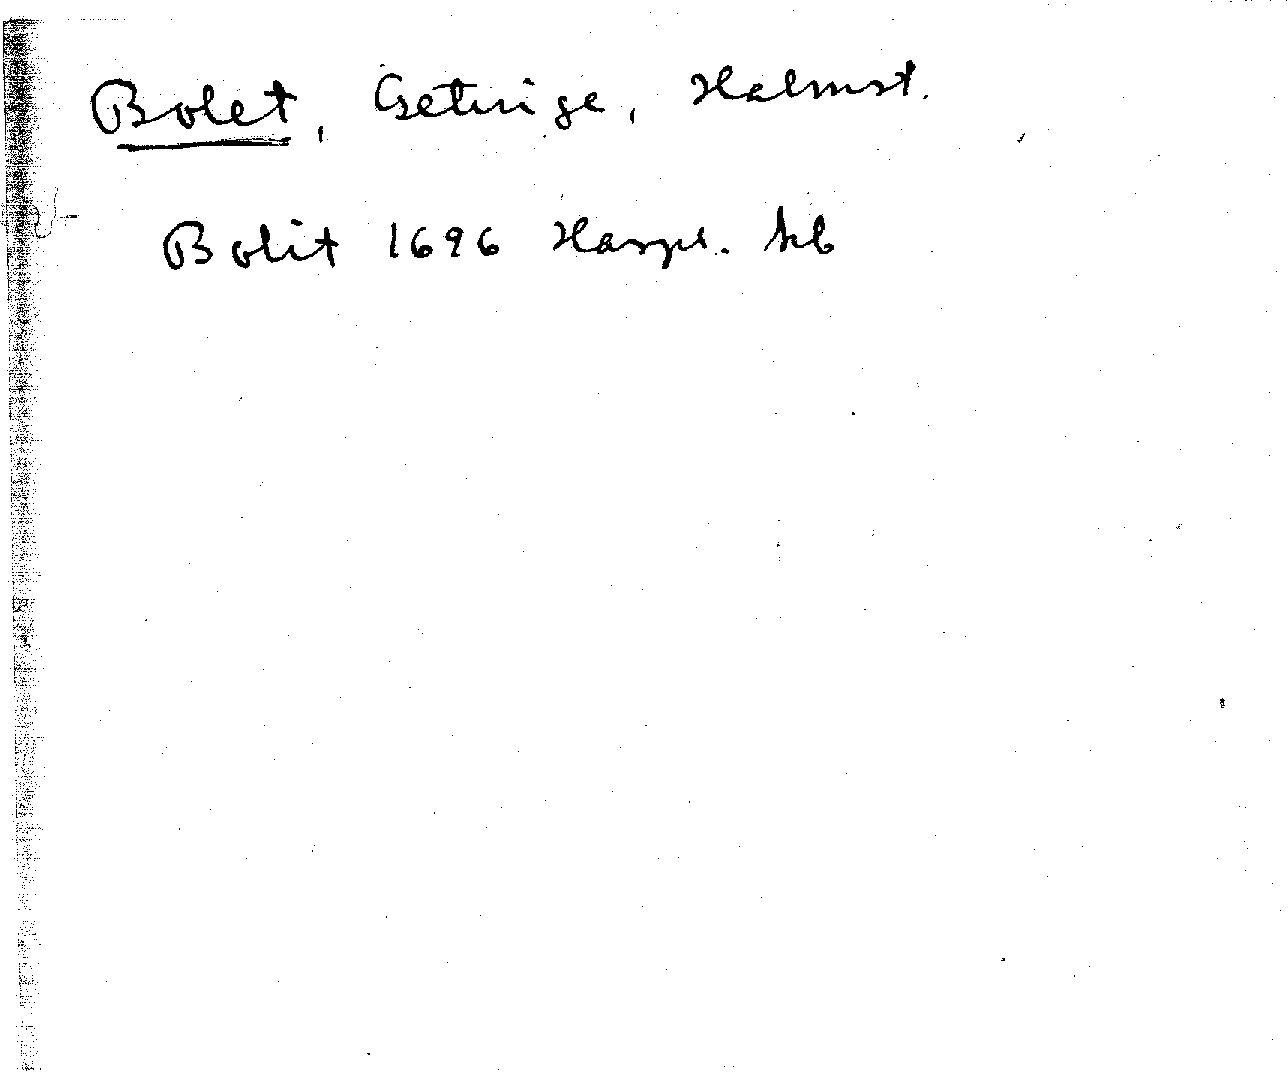 Bolet, Getinge, Halmst.
Bolit 1696 Harpl. kb